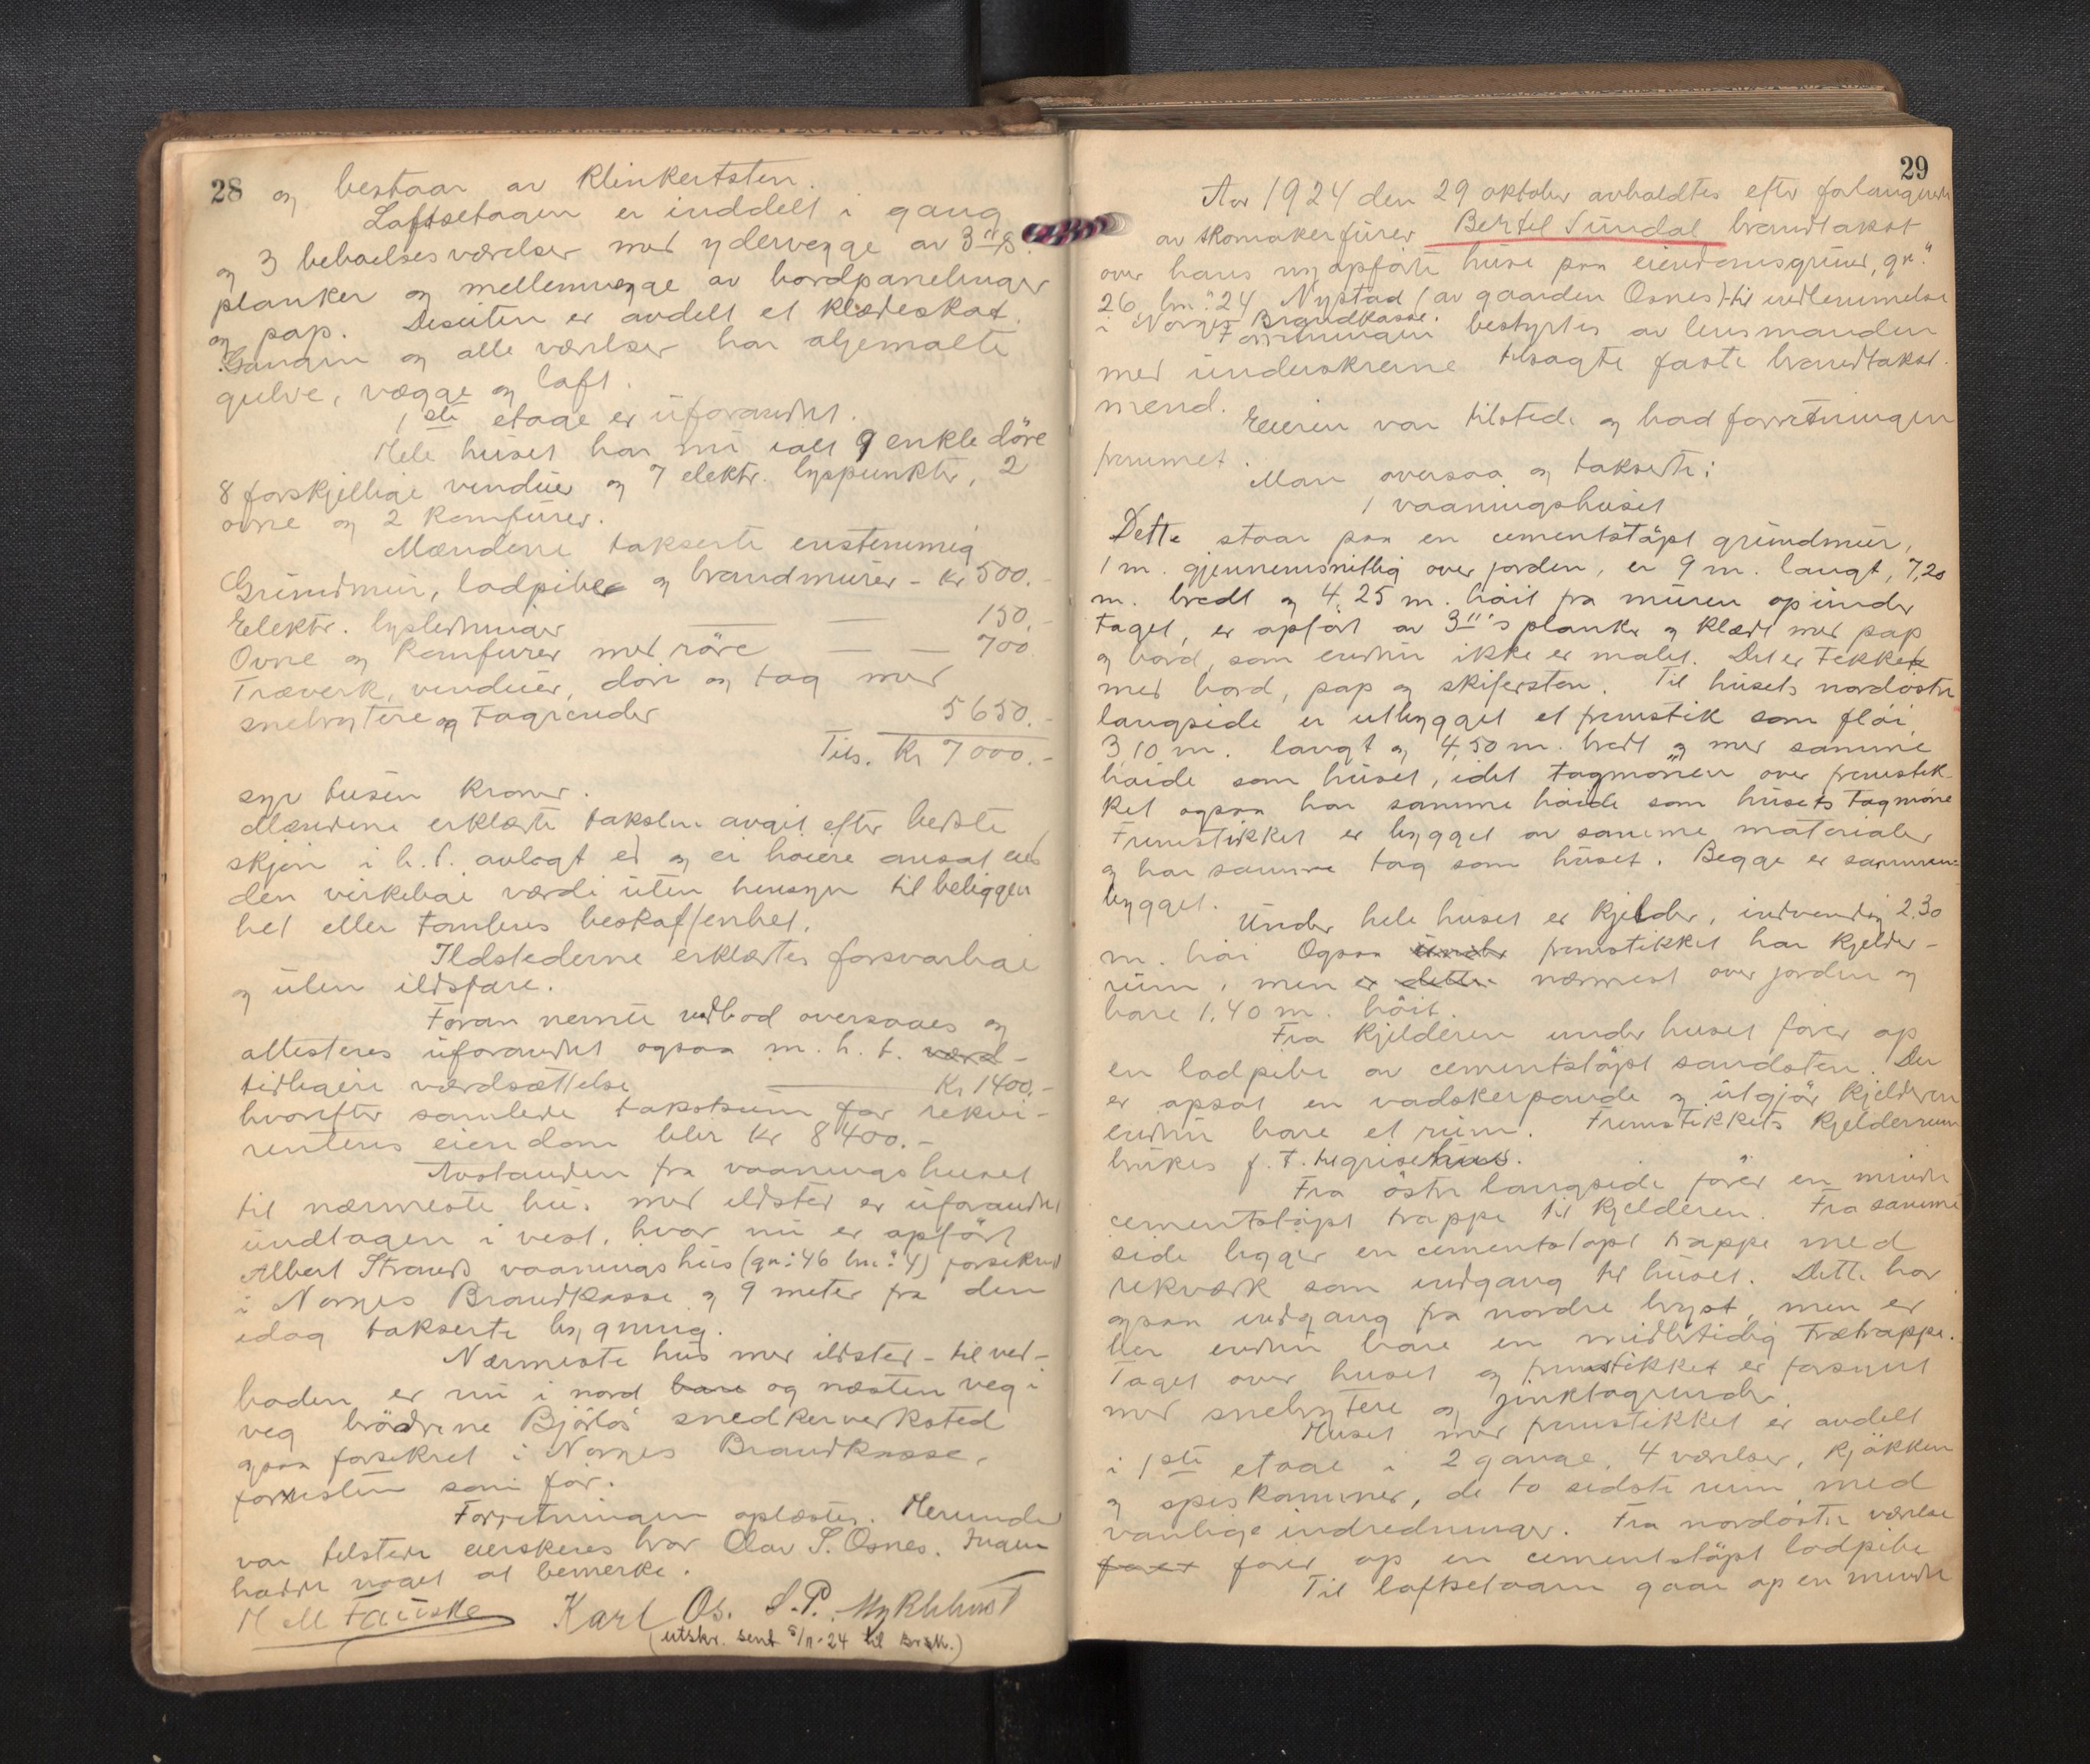 28 og bestaar av Klinkertsten.
Loftsetagen er inddelt i gang
og 3 beboelsesværelser med ydervegge av 3"s
planker og mellemvegge av bordpanelinger
og pap. Desuten er avdelt et klædeskot.
Gangen og alle værelser har oljemalte
gulve, vægge og loft.
1ste etage er uforandret.
Hele huset har nu ialt 9 enkle döre
8 forskjellige vinduer og 7 elektr. lyspunkter, 2
ovne og 2 Komfurer.
Mændene takserte enstemmig
Grundmur, lodpiber og brandmurer - Kr 500.-
Elektr. lysledninger — — 150.-
Ovne og Komfurer med röre — — 700.
Træverk, vinduer, döre og tag med
snebrytere og Tagrender 5650.-
Tils. Kr 7000.-
syv tusen Kroner.
Mændene erklærte taksten avgit efter bedste
skjön i h.t. avlagt ed og ei høiere ansat end
den virkelige værdi uten hensyn til beliggen
het eller tomtens beskaffenhet.
Ildstederne erklærtes forsvarlige
og uten ildsfare.
Foran nevnte vedbod oversaaes og
attesteres uforandret ogsaa m. h. t. værd-
tidligere værdsættelse — Kr 1400.-
hvorefter samlede takstsum for rekvi-
rentens eiendom blir Kr 8400.-
Avstanden fra vaaningshuset
til nærmeste hus med ildsted er uforandret
undtagen i vest, hvor nu er opfört
Albert Strands vaaningshus (gn: 46 bn: 4) forsikret
i Norges Brandkasse og 9 meter fra den
idag takserte bygning.
Nærmeste hus med ildsted - til ved-
boden er nu i nord bare og næsten veg i
veg brödrene Bjørlös snedkerverksted
ogsaa forsikret i Norges Brandkasse,
forresten som før.
Forretningen oplæstes. Herunder
var tilstede eierskens bror Olav S. Osnes. Ingen
hadde noget at bemerke.
H M Fauske Karl Os. S.P. Myklebust
(utskr. sent 5/11-24 til Brsk.)
29
Aar 1924 den 29 oktober avholdtes efter forlangende
av skomaker Bertel Sundal brandtakst
over hans nyopförte huse paa eiendomsgrund, gn."
26, bn: 24 Nystad (av gaarden Osnes) til indlemmelse
i Norges Brandkasse.
Forretningen bestyrtes av lensmanden
med underskrevne tilsagte faste brandtakst-
mend.
Eieren var tilstede og bad forretningen
fremmet.
Man oversaa og takserte:
1 vaaningshuset
Dette staar paa en cementstöpt grundmur,
1 m. gjennemsnitlig over jorden, er 9 m. langt, 7,20
m. bredt og 4,25 m. höit fra muren op under
taget, er opfört av 3"'s planker og klædt med pap
og bord, som endnu ikke er malet. Det er Tekket
med bord, pap og skifersten. Til husets nordöstre
langside er utbygget et fremstik som flöi,
3,10 m. langt og 4,50 m. bredt og med samme
höide som huset, idet tagmönen over fremstik-
ket ogsaa har samme höide som husets Tagmöne
Fremstikket er bygget av samme materialer
og har samme tag som huset. Begge er sammen-
bygget.
Under hele huset er Kjelder, indvendig 2,30
m. höi Ogsaa under fremstikket har kjelder-
rum, men er dette nærmest over jorden og
bare 1,40 m. höit.
Fra Kjelderen under huset förer op
en lodpibe av cementstöpt sandsten. Der
er opsat en vadskerpande og utgjör Kjelderen
endnu bare et rum. Fremstikkets Kjelderrum
brukes f. t. til grisehus.
Fra östre langside förer en mindre
cementstöpt trappe til Kjelderen. Fra samme
side ligger en cementstöpt trappe med
rekværk som indgang til huset. Dette har
ogsaa indgang fra nordre bryst, men er
her endnu bare en midlertidig Trætrappe.
Taget over huset og fremstikket er forsynt
med snebrytere og zinktagrender.
Huset med fremstikket er avdelt
i 1ste etage i 2 gange, 4 værelser, kjökken
og spiskammer, de to sidste rum med
vanlige indredninger. Fra nordöstre værelse
förer förer op en cementstöpt lodpibe
Til loftsetagen gaar op en mindre